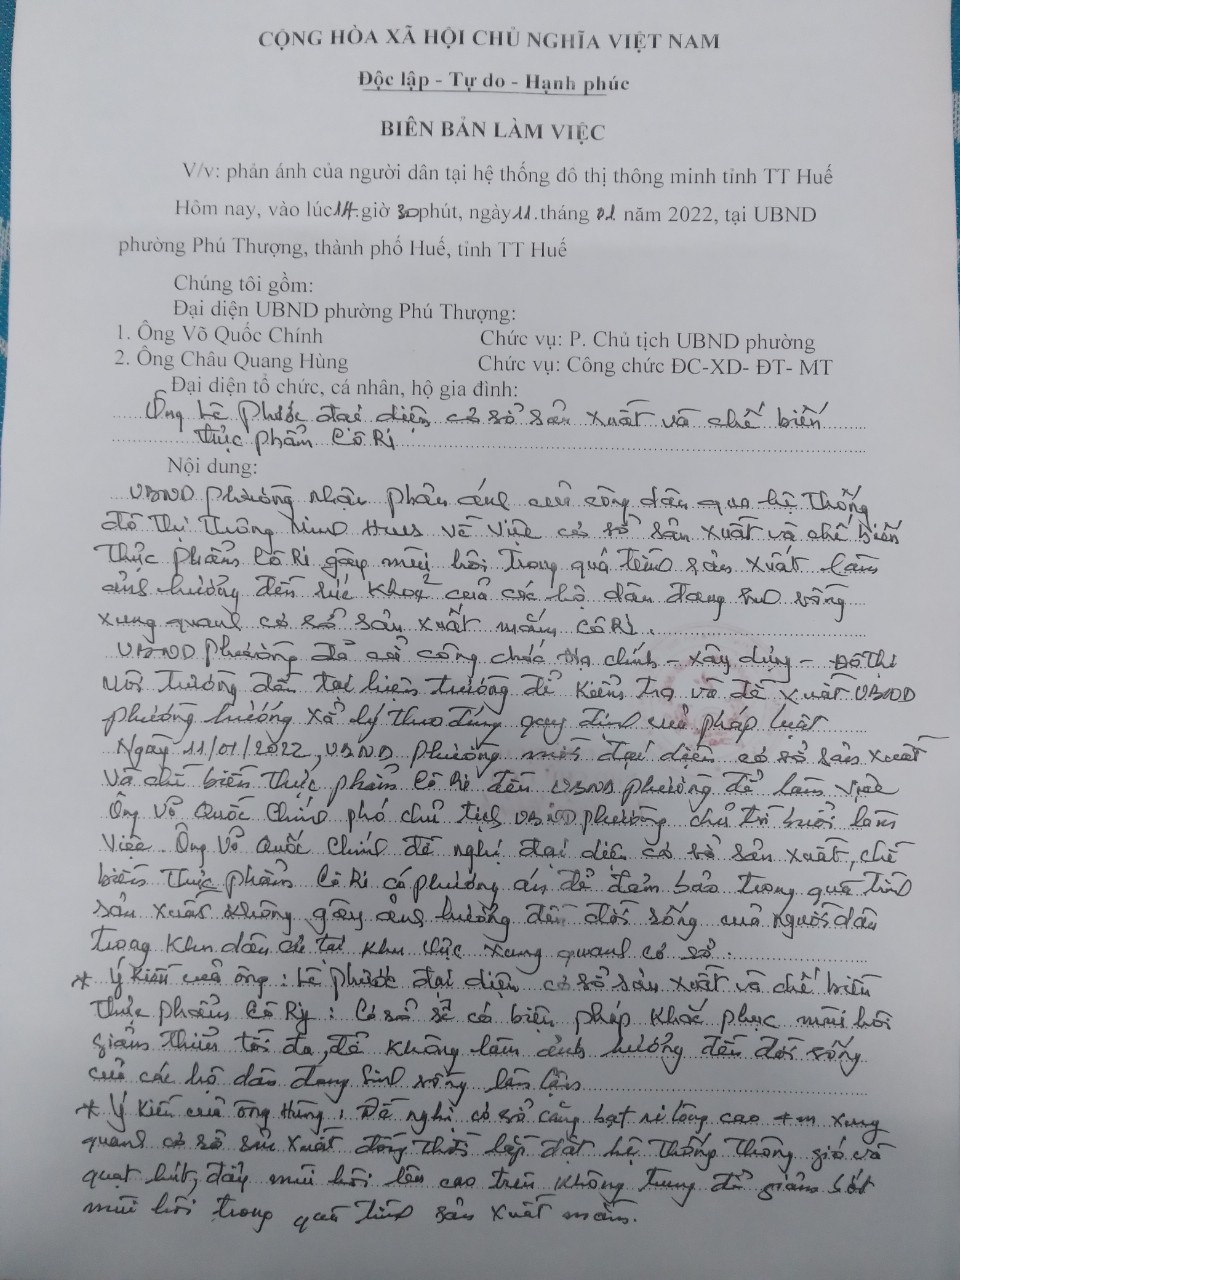 CỘNG HÒA XÃ HỘI CHỦ NGHĨA VIỆT NAM
Độc lập - Tự do - Hạnh phúc
BIÊN BẢN LÀM VIỆC
V/v: phản ánh của người dân tại hệ thống đô thị thông minh tỉnh TT Huế
Hôm nay, vào lúc 14 giờ 30 phút, ngày 11 tháng 01 năm 2022, tại UBND
phường Phú Thượng, thành phố Huế, tỉnh TT Huế
Chúng tôi gồm:
Đại diện UBND phường Phú Thượng:
1. Ông Võ Quốc Chính Chức vụ: P. Chủ tịch UBND phường
2. Ông Châu Quang Hùng Chức vụ: Công chức ĐC-XD- ĐT- MT
Đại diện tổ chức, cá nhân, hộ gia đình:
Ông Lê Phước đại diện cơ sở sản xuất và chế biến
thực phẩm Cô Ri
Nội dung:
UBND phường nhận phản ánh của công dân qua hệ thống
đô thị thông minh Hues về việc cơ sở sản xuất và chế biến
thực phẩm Cô Ri gây mùi hôi trong quá trình sản xuất làm
ảnh hưởng đến sức khoẻ của các hộ dân đang sinh sống
xung quanh cơ sở sản xuất mắm Cô Ri.
UBND phường đã cử công chức địa chính - xây dựng - Đô thị
Môi trường đến tại hiện trường để kiểm tra và đề xuất UBND
phường hướng xử lý theo đúng quy định của pháp luật
Ngày 11/01/2022, UBND phường mời đại diện cơ sở sản xuất
và chế biến thực phẩm Cô Ri đến UBND phường để làm việc
Ông Võ Quốc Chính phó chủ tịch UBND phường chủ trì buổi làm
việc. Ông Võ Quốc Chính đề nghị đại diện cơ sở sản xuất, chế
biến thực phẩm Cô Ri có phương án để đảm bảo trong quá trình
sản xuất không gây ảnh hưởng đến đời sống của người dân
trong khu dân cư tại khu vực xung quanh cơ sở.
* Ý kiến của ông: Lê Phước đại diện cơ sở sản xuất và chế biến
thực phẩm Cô Ry: Cơ sở sẽ có biện pháp khắc phục mùi hôi
giảm thiểu tối đa, để không làm ảnh hưởng đến đời sống
của các hộ dân đang sinh sống lân cận
* Ý kiến của ông Hùng: Đề nghị cơ sở căng bạt ni lông cao 4m xung
quanh cơ sở sản xuất đồng thời lắp đặt hệ thống thông gió và
quạt hút, đẩy mùi hôi lên cao trên không trung để giảm bớt
mùi hôi trong quá trình sản xuất mắm.